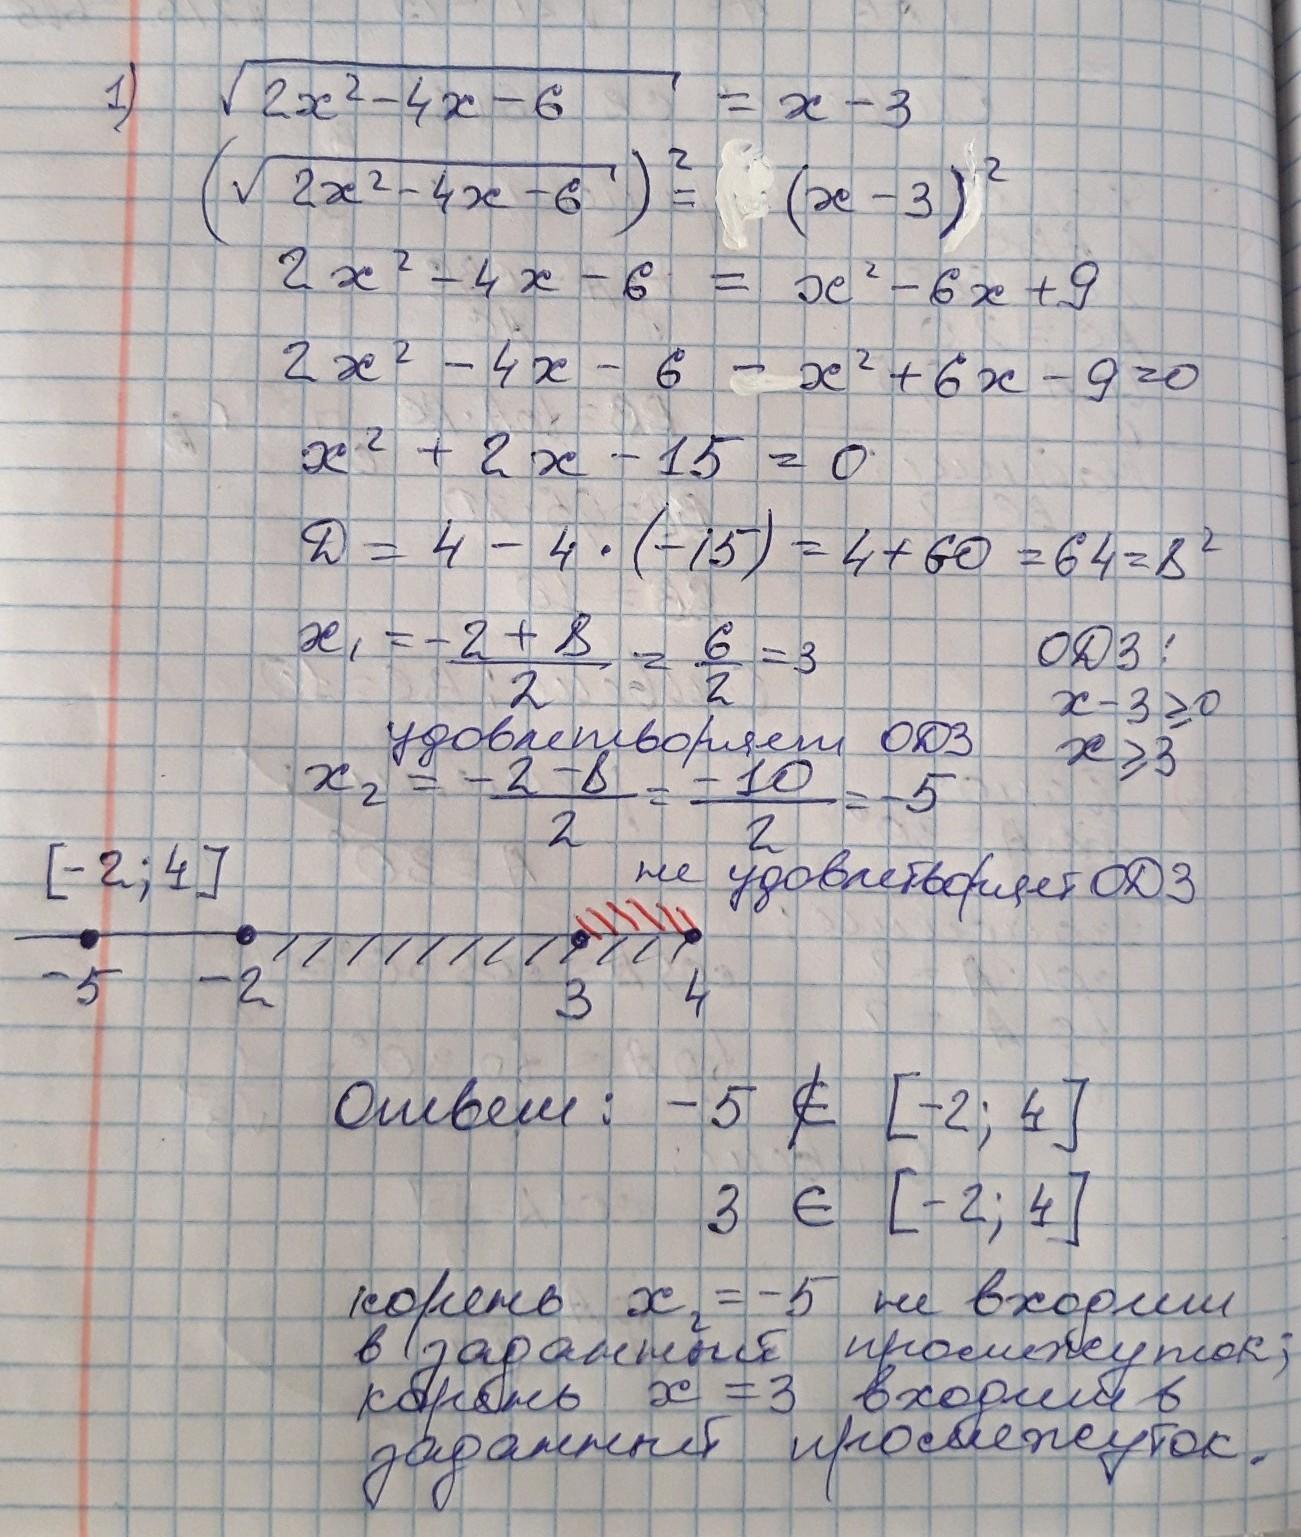 1) √2x² - 4x - 6 = x - 3
(√2x² - 4x - 6)² = (x - 3)²
2x² - 4x - 6 = x² - 6x + 9
2x² - 4x - 6 - x² + 6x - 9 = 0
x² + 2x - 15 = 0
D = 4 - 4 · (-15) = 4 + 60 = 64 = 8²
x₁ = (-2 + 8)/2 = 6/2 = 3
ОДЗ:
x - 3 ≥ 0
x ≥ 3
удовлетворяет ОДЗ
x₂ = (-2 - 8)/2 = -10/2 = -5
не удовлетворяет ОДЗ
[-2; 4]
-5 -2 3 4
Ответ: -5 ∉ [-2; 4]
3 ∈ [-2; 4]
корень x₂ = -5 не входит
в заданный промежуток;
корень x = 3 входит в
заданный промежуток.